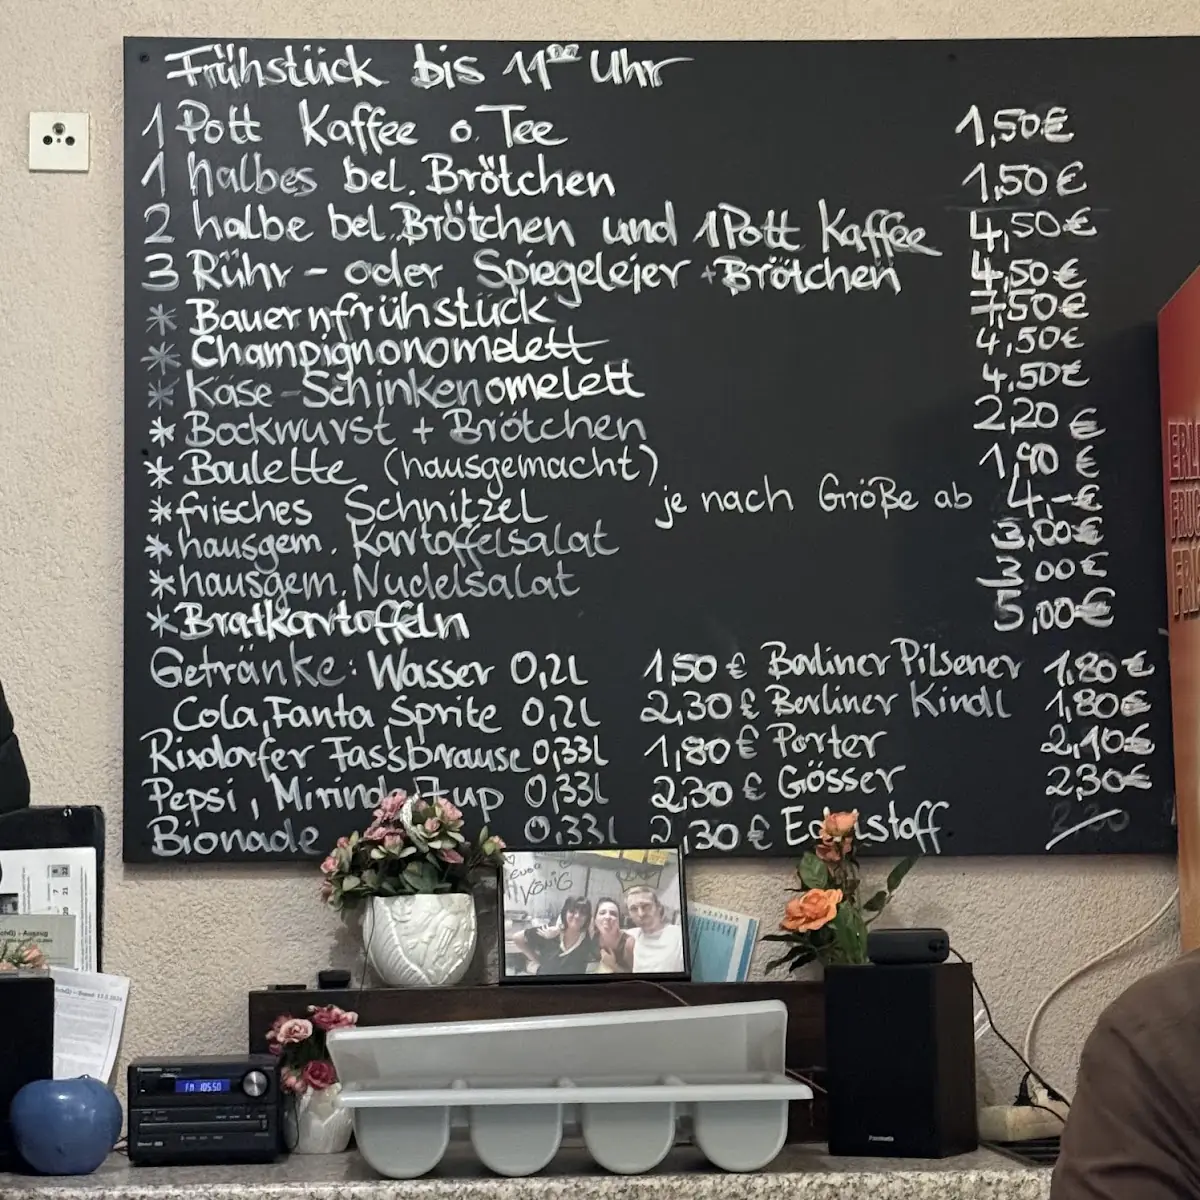 Frühstück bis 11⁰⁰ Uhr
1 Pott Kaffee o. Tee 1,50€
1 halbes bel. Brötchen 1,50€
2 halbe bel. Brötchen und 1 Pott Kaffee 4,50€
3 Rühr- oder Spiegeleier + Brötchen 4,50€
* Bauernfrühstück 7,50€
* Champignonomelett 4,50€
* Käse-Schinkenomelett 4,50€
* Bockwurst + Brötchen 2,20€
* Boulette (hausgemacht) 1,90€
* frisches Schnitzel je nach Größe ab 4,-€
* hausgem. Kartoffelsalat 3,00€
* hausgem. Nudelsalat 3,00€
* Bratkartoffeln 5,00€
Getränke: Wasser 0,2l 1,50€ Berliner Pilsener 1,80€
Cola, Fanta, Sprite 0,2l 2,30€ Berliner Kindl 1,80€
Rixdorfer Fassbrause 0,33l 1,80€ Porter 2,10€
Pepsi, Mirinda 7up 0,33l 2,30€ Gösser 2,30€
Bionade 0,33l 2,30€
KÖNIG
Panasonic
FM 105.50
Panasonic